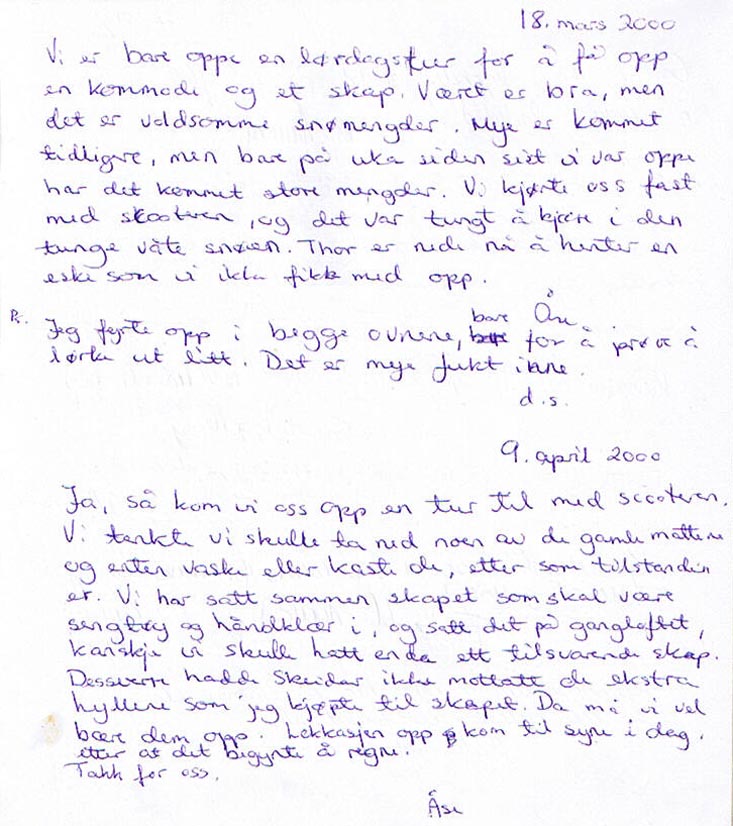 18. mars 2000
Vi er bare oppe en lørdagstur for å få opp
en kommode og et skap. Været er bra, men
det er voldsomme snømengder. Mye er kommet
tidligere, men bare på uka siden sist vi var oppe
har det kommet store mengder. Vi kjørte oss fast
med scooteren, og det var tungt å kjøre i den
tunge våte snøen. Thor er nede nå å henter en
eske som vi ikke fikk med opp.
Åse
Ps. Jeg fyrte opp i begge ovnene, bare for å prøve å
tørke ut litt. Det er mye fukt inne.
d.s.
9. april 2000
Ja, så kom vi oss opp en tur til med scooteren.
Vi tenkte vi skulle ta ned noen av de gamle mattene
og enten vaske eller kaste de, etter som tilstanden
er. Vi har satt sammen skapet som skal være
sengtøy og håndklær i, og satt det på gangloftet,
kanskje vi skulle hatt enda ett tilsvarende skap.
Dessverre hadde Skeidar ikke mottatt de ekstra
hyllene som jeg kjøpte til skapet. Da må vi vel
bære dem opp. Lekkasjen opp kom til syne i dag,
etter at det begynte å regne.
Takk for oss.
Åse